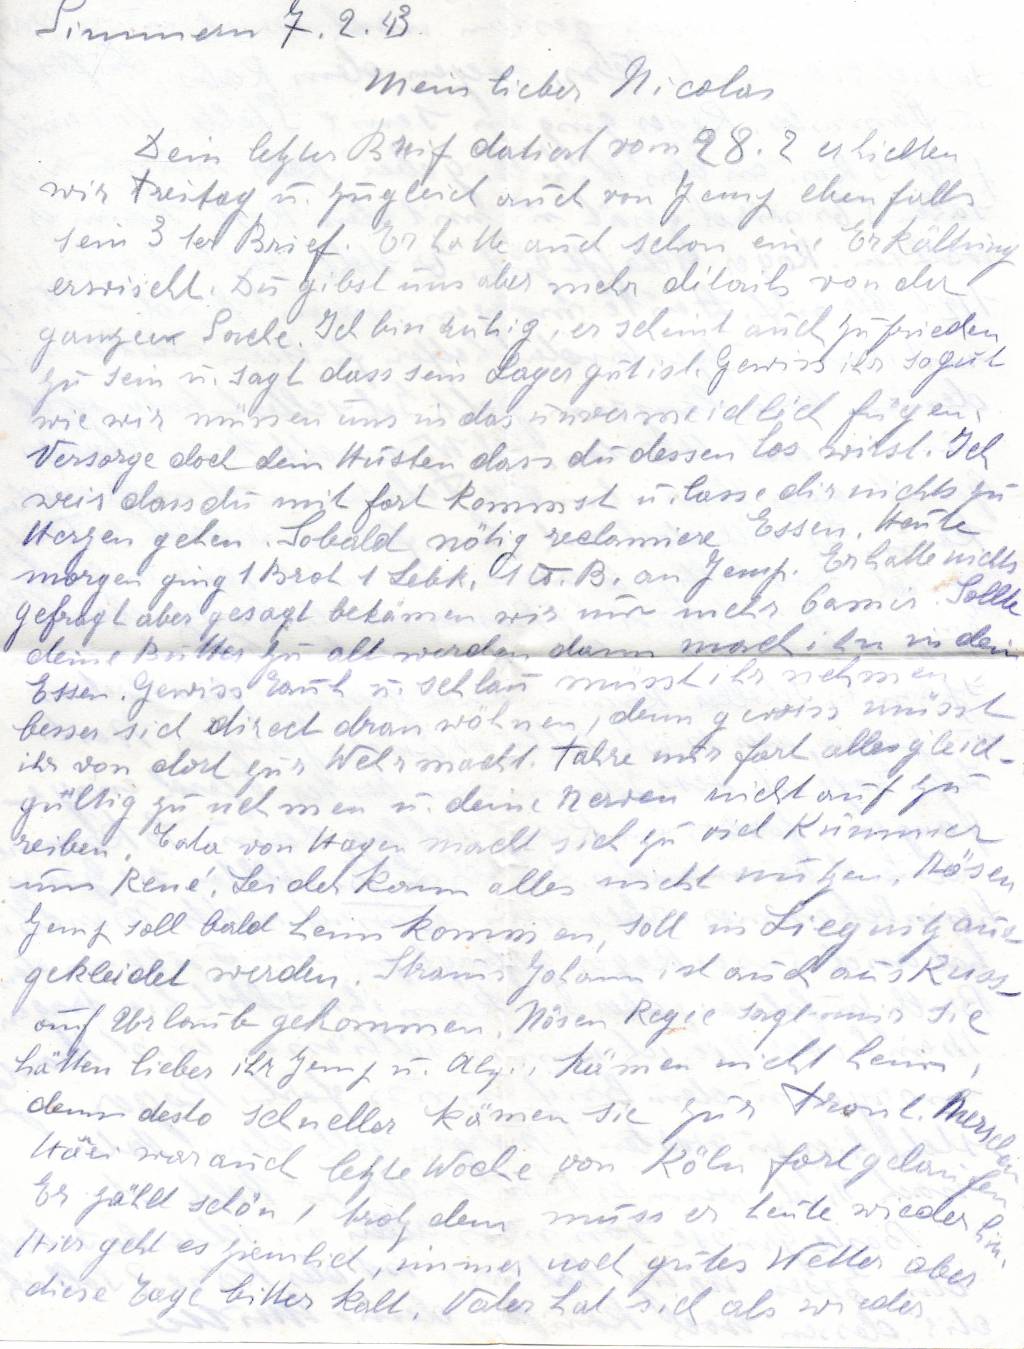 Simmern 7.2.43.
Mein lieber Nicolas
Dein letzter Brief datiert vom 28.2 erhielten
wir Freitag u. zugleich auch von Jemp ebenfalls
sein 3 ter Brief. Er hatte auch schon eine Erkältung
erwischt. Du gibst uns aber mehr ditails von der
ganzen Sache. Ich bin ruhig, er scheint auch zufrieden
zu sein u. sagt dass sein Lager gut ist. Gewiss ihr sogut
wie wir müssen uns in das unvermeidlich fügen.
Versorge doch dein Husten dass du dessen los wirst. Ich
weis dass du mit fort kommst u. lasse dir nichts zu
Herzen gehen. Sobald nötig reclamiere Essen. Heute
morgen ging 1 Brot 1 Lebk. 1 B. an Jemp. Er hatte nichts
gefragt aber gesagt bekämen wir nur mehr
Sollte
deine Butter zu alt werden dann mach ihn in dein
Essen. Gewiss rauh u. schlau müsst ihr nehmen
besser sich direct dran wöhnen, denn gewiss müsst
ihr von dort zur Wehrmacht. Fahre nur fort alles gleich-
gültig zu nehmen u. deine Nerven nicht auf zu
reiben. Tata von Hagen macht sich zu viel Kummer
um René. Leider kann alles nicht nützen. Nösen
Jemp soll bald heim kommen, soll in Liegnitz aus
gekleidet werden. Johann ist auch aus Russ-
auf Urlaub gekommen. Nösen Regie sagt mir sie
hätten lieber ihr Jemp u. Aly. kämen nicht heim,
denn desto schneller kämen sie zur Front.
Häri war auch letzte Woche von Köln fortgelaufen
Er zählt schön, trotz dem muss er heute wieder hin.
Hier geht es ziemlich, immer noch gutes Wetter aber
diese Tage bitter kalt. Vater hat sich als wieder